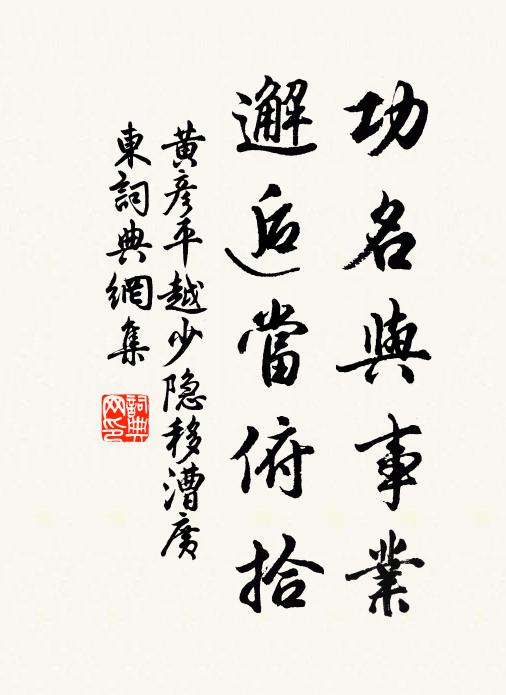 功名與事業
邂逅當俯拾
黃彥平越少隐移漕廣
東詞典網集
詞典
网印